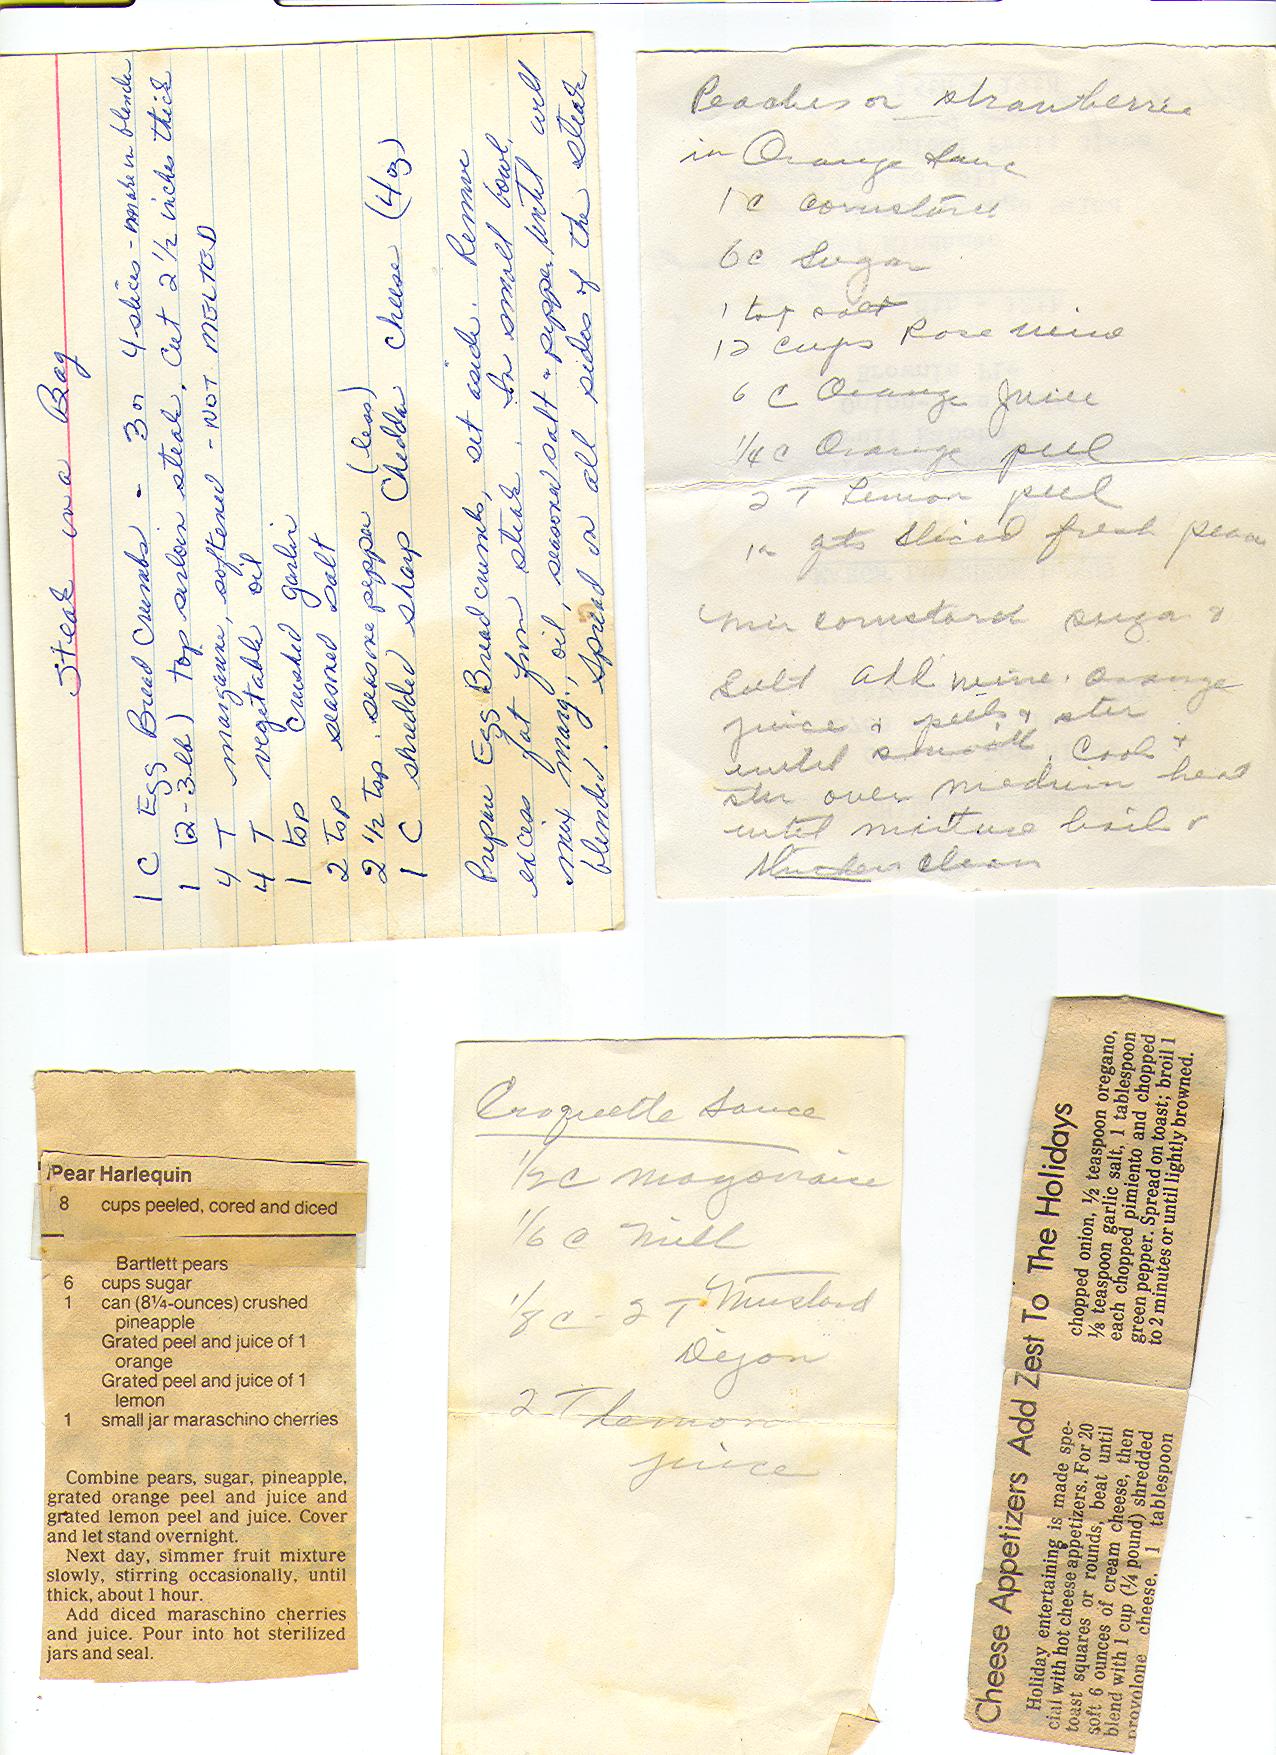 Steak in a Bag
1 C Egg Bread Crumbs - 3 or 4 slices - make in blender
1 (2-3 lb) top sirloin steak, cut 2 1/2 inches thick
4 T margarine, softened - NOT MELTED
4 T vegetable oil
1 tsp crushed garlic
2 tsp seasoned salt
2 1/2 tsp. seasone pepper (less)
1 C shredded sharp Chedda Cheese (4 oz)
Prepare Egg Bread crumbs, set aside. Remove
excess fat from steak. In small bowl,
mix marg., oil, seasoned salt & pepper until well
blended. Spread on all sides of the steak
Peaches or strawberrie
in Orange Sauc
1 C cornstarch
6 C Sugar
1 tsp salt
12 cups Rose wine
6 C Orange Juice
1/4 C Orange peel
2 T Lemon peel
12 qts sliced fresh
Mix cornstarch sugar &
Salt add wine. Orange
juice & peels & stir
until smooth. Cook &
stir over medium heat
until mixture boils &
thickens clean
Pear Harlequin
8 cups peeled, cored and diced
Bartlett pears
6 cups sugar
1 can (8¼-ounces) crushed
pineapple
Grated peel and juice of 1
orange
Grated peel and juice of 1
lemon
1 small jar maraschino cherries
Combine pears, sugar, pineapple,
grated orange peel and juice and
grated lemon peel and juice. Cover
and let stand overnight.
Next day, simmer fruit mixture
slowly, stirring occasionally, until
thick, about 1 hour.
Add diced maraschino cherries
and juice. Pour into hot sterilized
jars and seal.
Croquette Sauce
1/2 C Mayonnaise
1/6 C Milk
1/8 C - 2 T Mustard
Dijon
2 T Lemon
juice
Cheese Appetizers Add Zest To The Holidays
Holiday entertaining is made spe-
cial with hot cheese appetizers. For 20
toast squares or rounds, beat until
soft 6 ounces of cream cheese, then
blend with 1 cup (¼ pound) shredded
provolone cheese, 1 tablespoon
chopped onion, ½ teaspoon oregano,
⅛ teaspoon garlic salt, 1 tablespoon
each chopped pimiento and chopped
green pepper. Spread on toast; broil 1
to 2 minutes or until lightly browned.